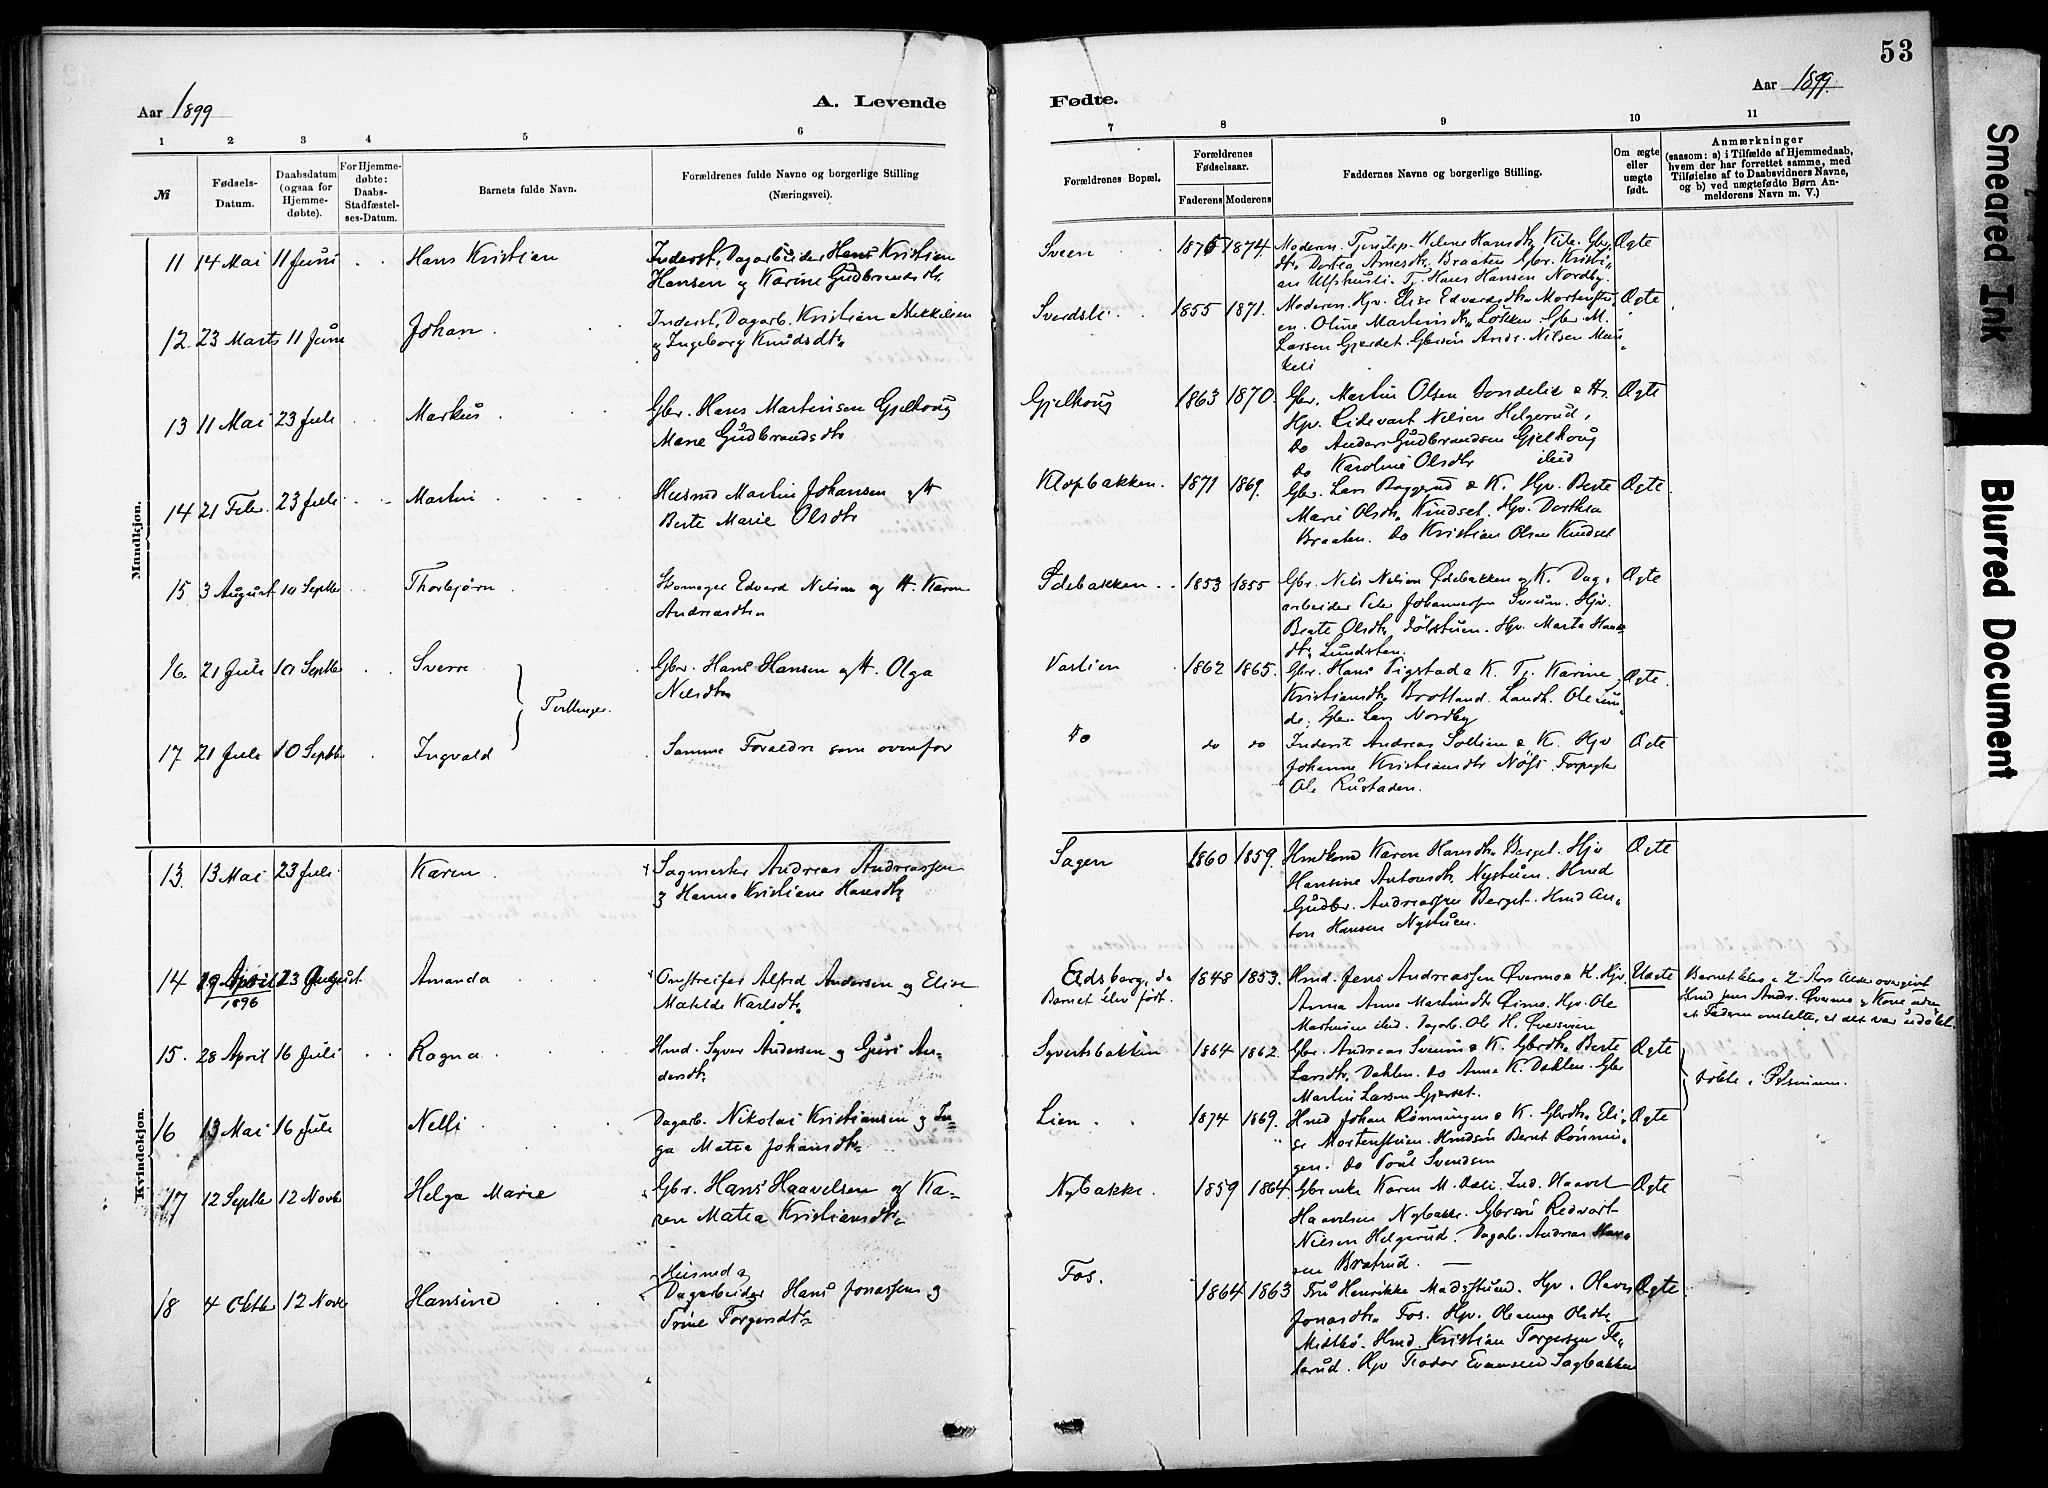 53
Aar 1899
A. Levende
Fødte.
Aar 1899
1 2 3 4 5 6 7 8 9 10 11
№
Fødsels-
Datum.
Daabsdatum
(ogsaa for
Hjemme-
døbte).
For Hjemme-
døbte:
Daabs-
Stadfæstel-
ses-Datum.
Barnets fulde Navn.
Forældrenes fulde Navne og borgerlige Stilling
(Næringsvei).
Forældrenes Bopæl.
Forældrenes
Fødselsaar.
Faderens Moderens
Faddernes Navne og borgerlige Stilling.
Om ægte
eller
uægte
født.
Anmærkninger
(saasom: a) i Tilfælde af Hjemmedaab,
hvem der har forrettet samme, med
Tilføielse af to Daabsvidners Navne,
og b) ved uægtefødte Børn An-
melderens Navn m. V.)
Mandkjøn.
11 14 Mai 11 Juni Hans Kristian
Inderst, Dagarbeider Hans Kristian
Hansen og Karine Gudbrandsdtr
Sveen 1875 1874
Moderen. Helene Hansdtr
Dortea Arnesdtr Braaten Gbr. Kristi-
an Ulfshusli. Tj. Hans Hansen Nordby.
Ægte
12. 23 Marts 11 Juni Johan.
Inderst, Dagarb. Kristian Mikkelsen
og Ingeborg Knudsdtr
Svendsli 1855 1871.
Moderen. Hpv. Elise Edvardsdtr Mortenstu-
en. Oline Martinsdtr Løkken Gbr. M.
Larsen Gjerdet. Gbrsøn Andr. Nilsen
Ægte
13 11 Mai 23 Juli Markus
Gbr. Hans Martinsen Gjelhoug
Marie Gudbrandsdtr
Gjelhoug 1863 1870.
Gbr. Martin Olsen
Nilsen Helgerud,
do Anders Gudbrandsen Gjelhoug
do Karoline Olsdtr ibid
Ægte
14 21 Febr. 23 Juli Martin
Husmd Martin Johansen og H.
Berte Marie Olsdtr
Klopbakken. 1871 1869.
Gbr. Lars Baggerud & K. Hpv. Berte
Marie Olsdtr Kindset. Hpv. Dorthea
Braaten. do Kristian Olsen Kindset
Ægte
15. 3 August 10 Septbr Thorbjørn
Skomager Edvard Nilsen og H. Karen
Andreasdtr
Ødebakken 1853 1855
Gbr. Nils Nilsen Ødebakken og K. Dag-
arbeider Peter Johannessen Sveum. Hpv.
Beate Olsdtr. Hpv. Marta Hans-
dtr Lundsten.
Ægte
16. 21 Juli 10 Septbr Sverre
Tvillinger.
Gbr. Hans Hansen og H. Olga
Nilsdtr
Vestlien 1862 1865.
Gbr. Hans Tigstad & K. Tj. Karine
Kristiansdtr Brotland. Landh. Ole Lun-
de, Gbr. Lars Nordby
Ægte
17. 21 Juli 10 Septbr Ingvald
Samme Forældre som ovenfor
Do do do
Inderst Andreas Sollien & K. Hpv
Johanne Kristiansdtr
Ole Rustaden.
Ægte
Kvindekjøn.
13. 13 Mai 23 Juli Karen
Sagmester Andreas Andreassen
og Hanna Kristiane Hansdtr
Sagen 1860 1859.
Karen Hansdtr Berget. Hpv
Hansine Antonsdtr Nystuen. Hmd
Gudbr. Andreassen Berget. Hmd An-
ton Hansen Nystuen.
Ægte
14 19 April 1896 23 August Amanda
Omstreifer Alfred Andersen og Elise
Matilde Karlsdtr
Eidsberg, da
Barnet blev født. 1848 1853.
Hmd. Jens Andreassen Øvermo & K. Hpv.
Anna Martinsdtr Ole
Martinsen ibid. Dagarb. Ole H.
Uægte
Barnet blev i 2 Aars Alder overgivet
Hmd Jens Andr. Øvermo og Kone uden
at Faderen omtalte, at det var udøbt.
15. 28 April 16 Juli Ragna
Hmd. Syver Andersen og Guri An-
dersdtr
Syvertsbakken 1864 1862.
Gbr. Andreas Sveum & K. Gbrdtr Berte
Larsdtr Dahlen. do Anna K. Dahlen. Gbr
Martin Larsen Gjerdet.
Ægte
16 13 Mai 16 Juli Nelli
Dagarb. Nikolai Kristiansen og In-
ga Matea Johansdtr
Lien 1874 1869.
Hmd Johan Rønningen & K. Gbrdtr Eli-
se Mortenstuen. Hmdsøn Bernt Rønnin-
gen. do Poul Svendsen
Ægte
døbte i
17 12 Septbr 12 Novbr Helga Marie
Gbr. Hans Haavelsen og Ka-
ren Matea Kristiansdtr
Nybakke. 1859 1864
Gbrenke Karen M. Ind. Haavel
Haavelsen Nybakke. Gbrsøn Redvart
Nilsen Helgerud. Dagarb. Andreas Han-
sen Bratrud.
Ægte
18 4 Oktbr 12 Novbr Hansine
Husmd og
Dagarbeider Hans Jonassen og
Trine Torgersdtr
Fos. 1864 1863
Fru Henrikke Madsstuen. Hpv.
Jonasdtr Fos. Hpv. Oleanna Olsdtr
Midtbø. Hmd. Kristian Torgersen
Hpv Teodor Evensen Sagbakken
Ægte
Smeared Ink
Blurred Document